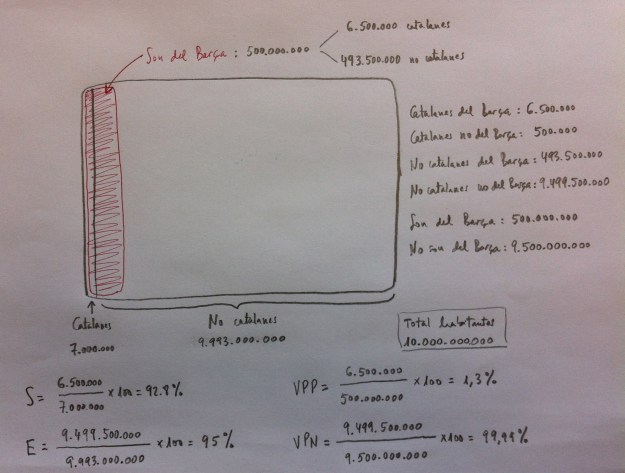 6.500.000 catalanes
Son del Barça : 500.000.000
493.500.000 no catalanes
Catalanes del Barça : 6.500.000
Catalanes no del Barça : 500.000
No catalanes del Barça : 493.500.000
No catalanes no del Barça : 9.499.500.000
Son del Barça : 500.000.000
No son del Barça : 9.500.000.000
Catalanes
7.000.000
No catalanes
9.993.000.000
Total habitantes
10.000.000.000
S = 6.500.000 / 7.000.000 × 100 = 92.8%
VPP = 6.500.000 / 500.000.000 × 100 = 1,3%
E = 9.499.500.000 / 9.993.000.000 × 100 = 95%
VPN = 9.499.500.000 / 9.500.000.000 × 100 = 99,99%